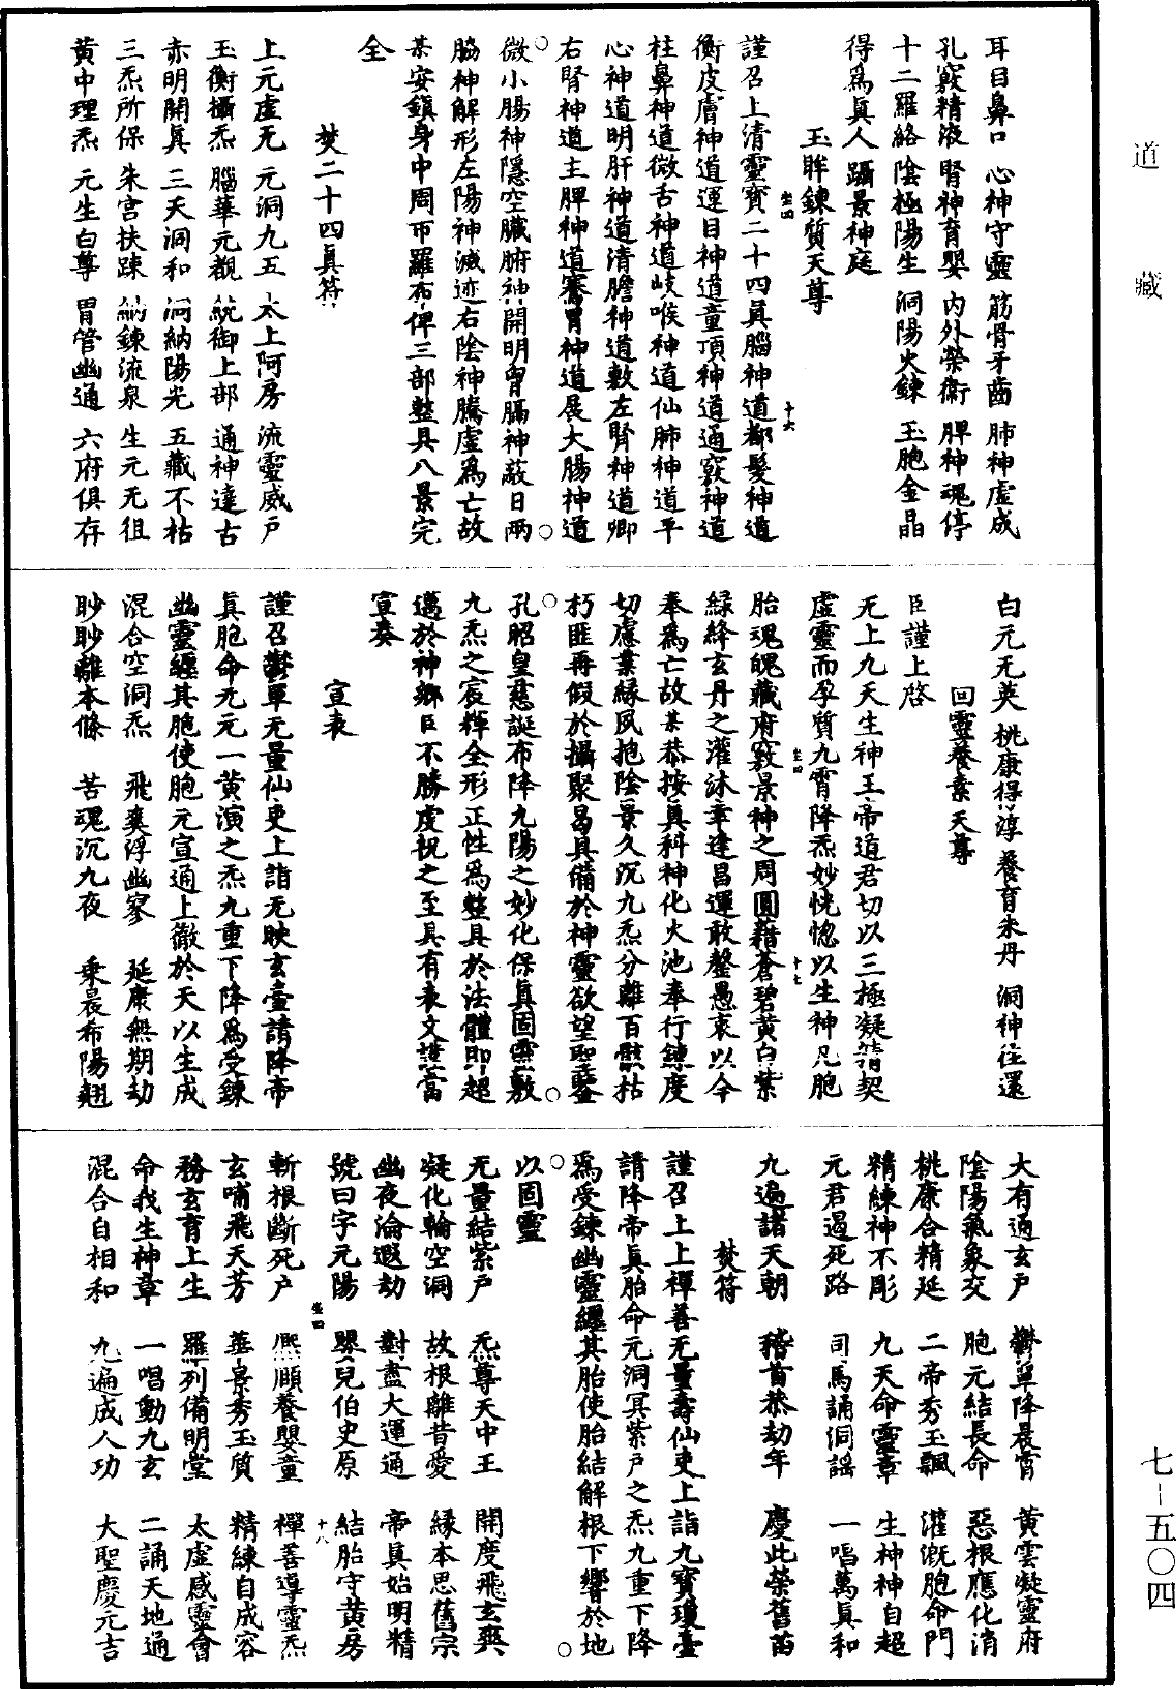 耳目鼻口　心神守靈　筋骨牙齒　肺神虛成
孔竅精液　腎神育嬰　內外榮衛　脾神魂停
十二羅絡　陰極陽生　洞陽火鍊　玉胞金晶
得爲眞人　躡景神庭
玉眸鍊質天尊
坐四　十六
謹召上清靈寶二十四眞腦神道都髮神道
衡皮膚神道運目神道童頂神道通竅神道
柱鼻神道微舌神道岐喉神道仙肺神道平
心神道明肝神道清膽神道敷左腎神道卿
右腎神道主脾神道騫胃神道展大腸神道
○微小腸神隱空臟腑神開明胷膈神蔽日兩○
脇神解形左陽神滅迹右陰神騰虛爲亡故
某安鎮身中周帀羅布俾三部整具八景完
全
焚二十四眞符
上元虛无　元洞九五　太上阿房　流靈威戶
玉衡攝炁　腦華元觀　統御上部　通神達古
赤明開眞　三天洞和　洞納陽光　五藏不枯
三炁所保　朱宮扶踈　納鍊流泉　生元无徂
黃中理炁　元生白尊　胃管幽通　六府俱存
白元无英　桃康得淳　養育朱丹　洞神往還
回靈養素天尊
臣謹上啓
无上九天生神王帝道君切以三極凝清契
虛靈而孕質九霄降炁妙恍惚以生神凡胞
坐四　十七
胎魂魄藏府竅景神之周圓藉蒼碧黃白紫
緑絳玄丹之灌沐幸逢昌運敢罄愚衷以今
奉爲亡故某恭按眞科神化火池奉行鍊度
切慮業緣夙抱陰景久沉九炁分離百骸枯
朽匪再假於攝聚曷具備於神靈欲望聖鑒
○孔昭皇慈誕布降九陽之妙化保眞固靈敷○
九炁之宸輝全形正性爲整具於法體即超
邁於神鄉臣不勝虔祝之至具有表文謹當
宣奏
宣表
謹召鬱單无量仙吏上詣无映玄臺請降帝
眞胞命元元一黃演之炁九重下降爲受鍊
幽靈纏其胞使胞元宣通上徹於天以生成
混合空洞炁　飛爽浮幽寥　延康無期劫
眇眇離本條　苦魂沉九夜　乘晨希陽翹
大有通玄戶　鬱單降晨霄　黃雲凝靈府
陰陽氣象交　胞元結長命　惡根應化消
桃康合精延　二帝秀玉飄　灌溉胞命門
精練神不彫　九天命靈章　生神神自超
元君遏死路　司馬誦洞謠　一唱萬眞和
九遍諸天朝　稽首恭劫年　慶此榮舊苗
焚符
謹召上上禪善无量壽仙吏上詣九寶瓊臺
請降帝眞胎命元洞冥紫戶之炁九重下降
○爲受鍊幽靈纏其胎使胎結解根下響於地○
以固靈
无量結紫戶　炁尊天中王　開度飛玄爽
凝化輪空洞　故根離昔愛　緣本思舊宗
幽夜淪遐劫　對盡大運通　帝眞始明精
號曰字元陽　嬰兒伯史原　結胎守黃房
坐四　十八
斬根斷死戶　熈頤養嬰童　禪善導靈炁
玄哺飛天芳　華景秀玉質　精練自成容
務玄育上生　羅列備明堂　太虛感靈會
命我生神章　一唱動九玄　二誦天地通
混合自相和　九遍成人功　大聖慶元吉
道藏
七-五〇四